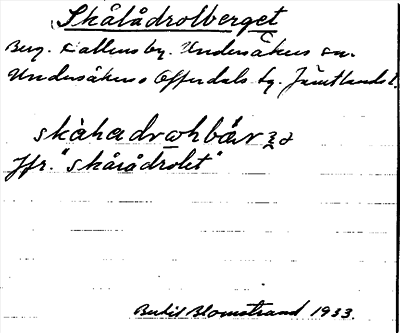 Skålådrolberget
Berg. Vallens by. Undersåkers sn.
Undersåkers o Offerdals tg. Jämtlands l.
Jfr. "skårådrolet"
Bertil Blomstrand 1933.